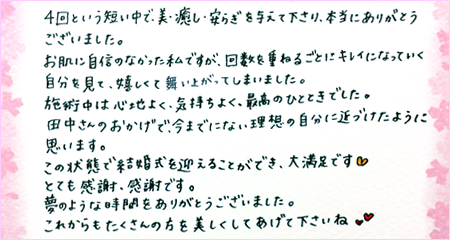 4回という短い中で、美・癒し・安らぎを与えて下さり、本当にありがとう
ございました。
お肌に自信のなかった私ですが、回数を重ねるごとにキレイになっていく
自分を見て、嬉しくて舞い上がってしまいました。
施術中は心地よく、気持ちよく、最高のひとときでした。
田中さんのおかげで、今までにない理想の自分に近づけたように
思います。
この状態で結婚式を迎えることができ、大満足です
とても感謝、感謝です。
夢のような時間をありがとうございました。
これからもたくさんの方を美しくしてあげて下さいね